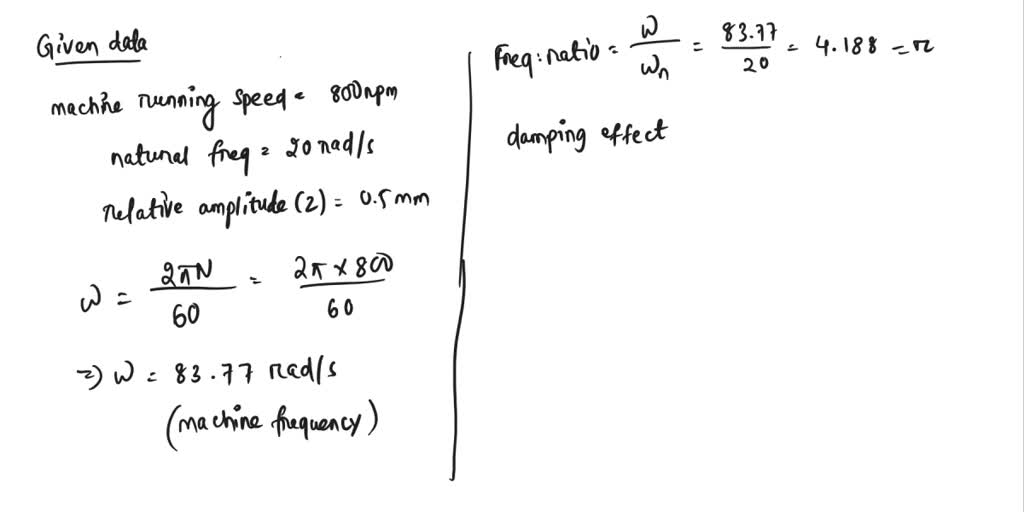 Given data
machine running speed = 800rpm
natural freq = 20 rad/s
relative amplitude (Z) = 0.5 mm
ω = 2πN / 60 = 2π × 800 / 60
⇒ ω = 83.77 rad/s
(machine frequency)
Freq: ratio = ω / ωn = 83.77 / 20 = 4.188 = r
damping effect